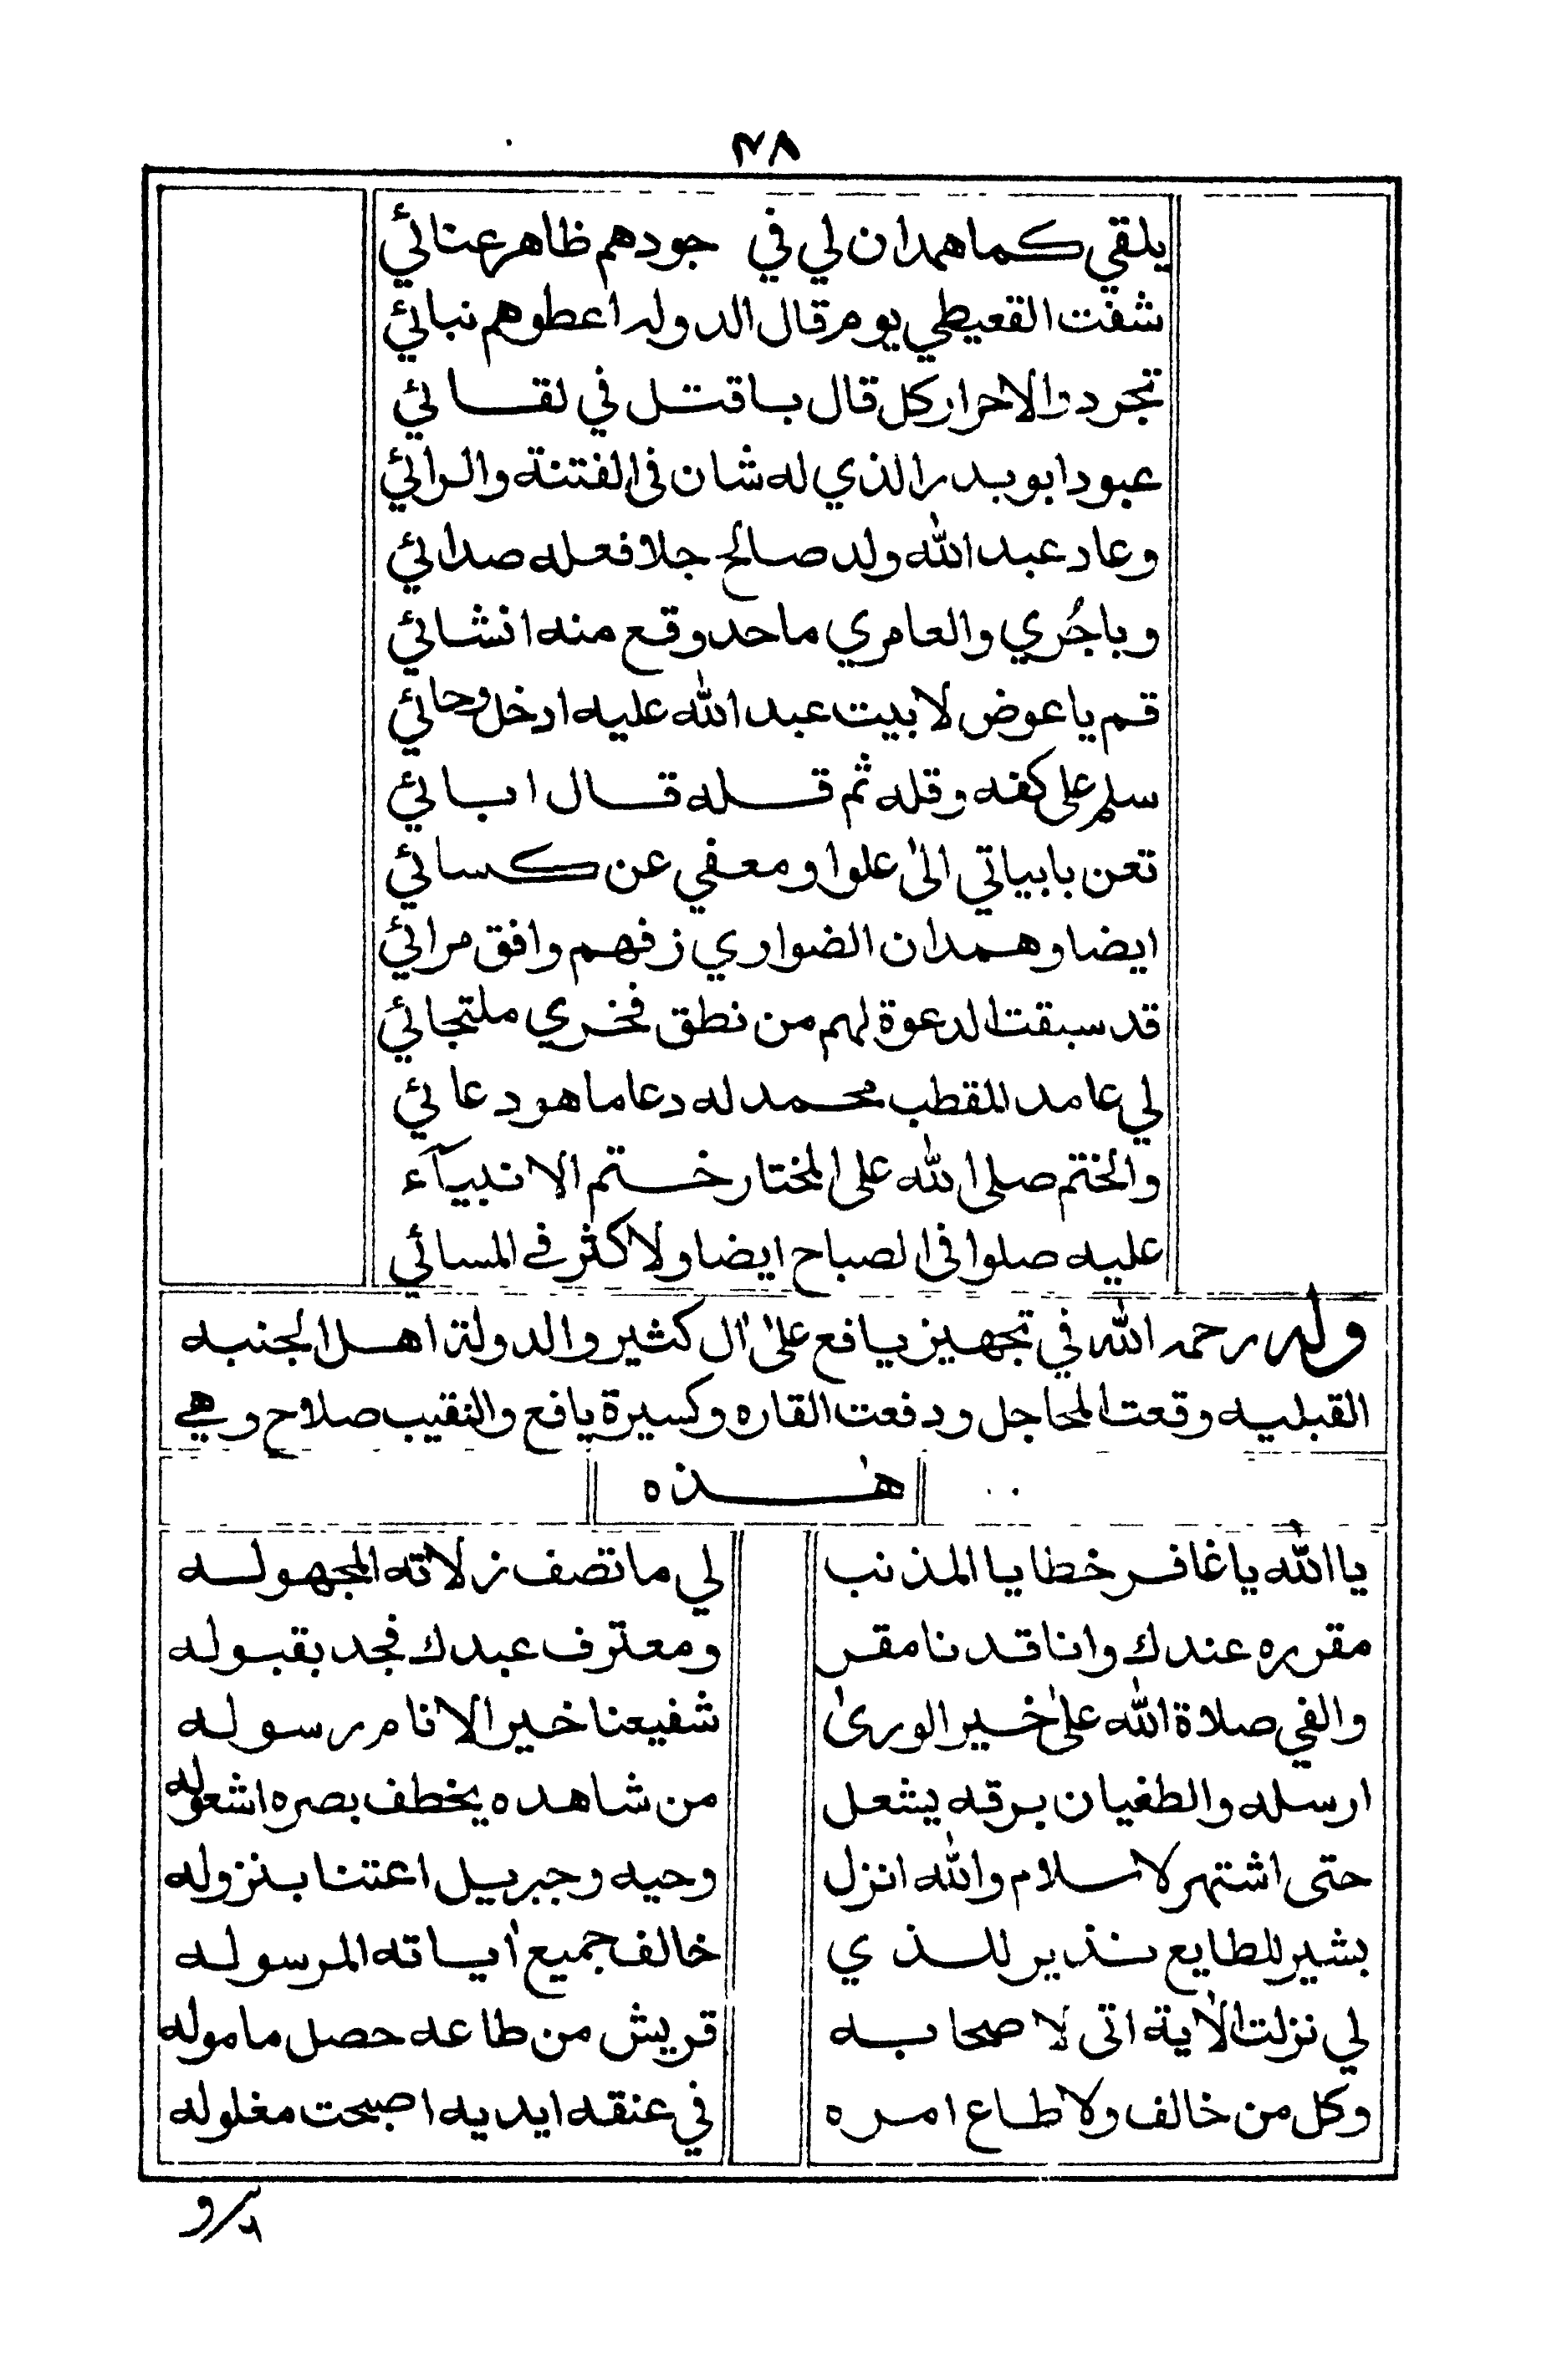 ٣٨
يلقي كما همدان لي في جودهم ظاهر عنائي
شفت القعيطي يوم قال الدوله اعطوهم نبائي
تجرد والاحرار كل قال باقتل في لقائي
عبود ابو بدر الذي له شان في الفتنة والرائي
وعاد عبد الله ولد صالح جلا فعله صدائي
وباجُري والعامري ما حد وقع منه انشائي
قم يا عوض لا بيت عبد الله عليه ادخل وحائي
سلم على كفه وقله ثم قله قال ابائي
تعن بابياتي الى علوا ومعفي عن كسائي
ايضا وهمدان الضواري زفهم وافق مرائي
قد سبقت الدعوة لهم من نطق فخري ملتجائي
لي عامد المقطب محمد له دعا ما هو دعائي
والختم صلى الله على المختار ختم الانبيآء
عليه صلوا في الصباح ايضا ولا كثر في المسائي
وله رحمه الله في تجهيز يافع على ال كثير والدولة اهل الجنبه
القبليه وقعت المحاجل ودفعت القاره وكسيرة يافع والنقيب صلاح وهي
هذه
يا الله يا غافر خطايا المذنب لي ما تصف زلاته المجهوله
مقرره عندك وانا قدنا مقر ومعترف عبدك فجد بقبوله
والفي صلاة الله على خير الورى شفيعنا خير الانام رسوله
ارسله والطغيان برقه يشعل من شاهده يخطف بصره اشعوله
حتى اشتهر لاسلام والله انزل وحيه وجبريل اعتنا بنزوله
بشير للطايع نذير للذي خالف جميع اياته المرسوله
لي نزلت الاية اتى لا صحابه قريش من طاعه حصل ماموله
وكل من خالف ولا طاع امره في عنقه ايديه اصبحت مغلوله